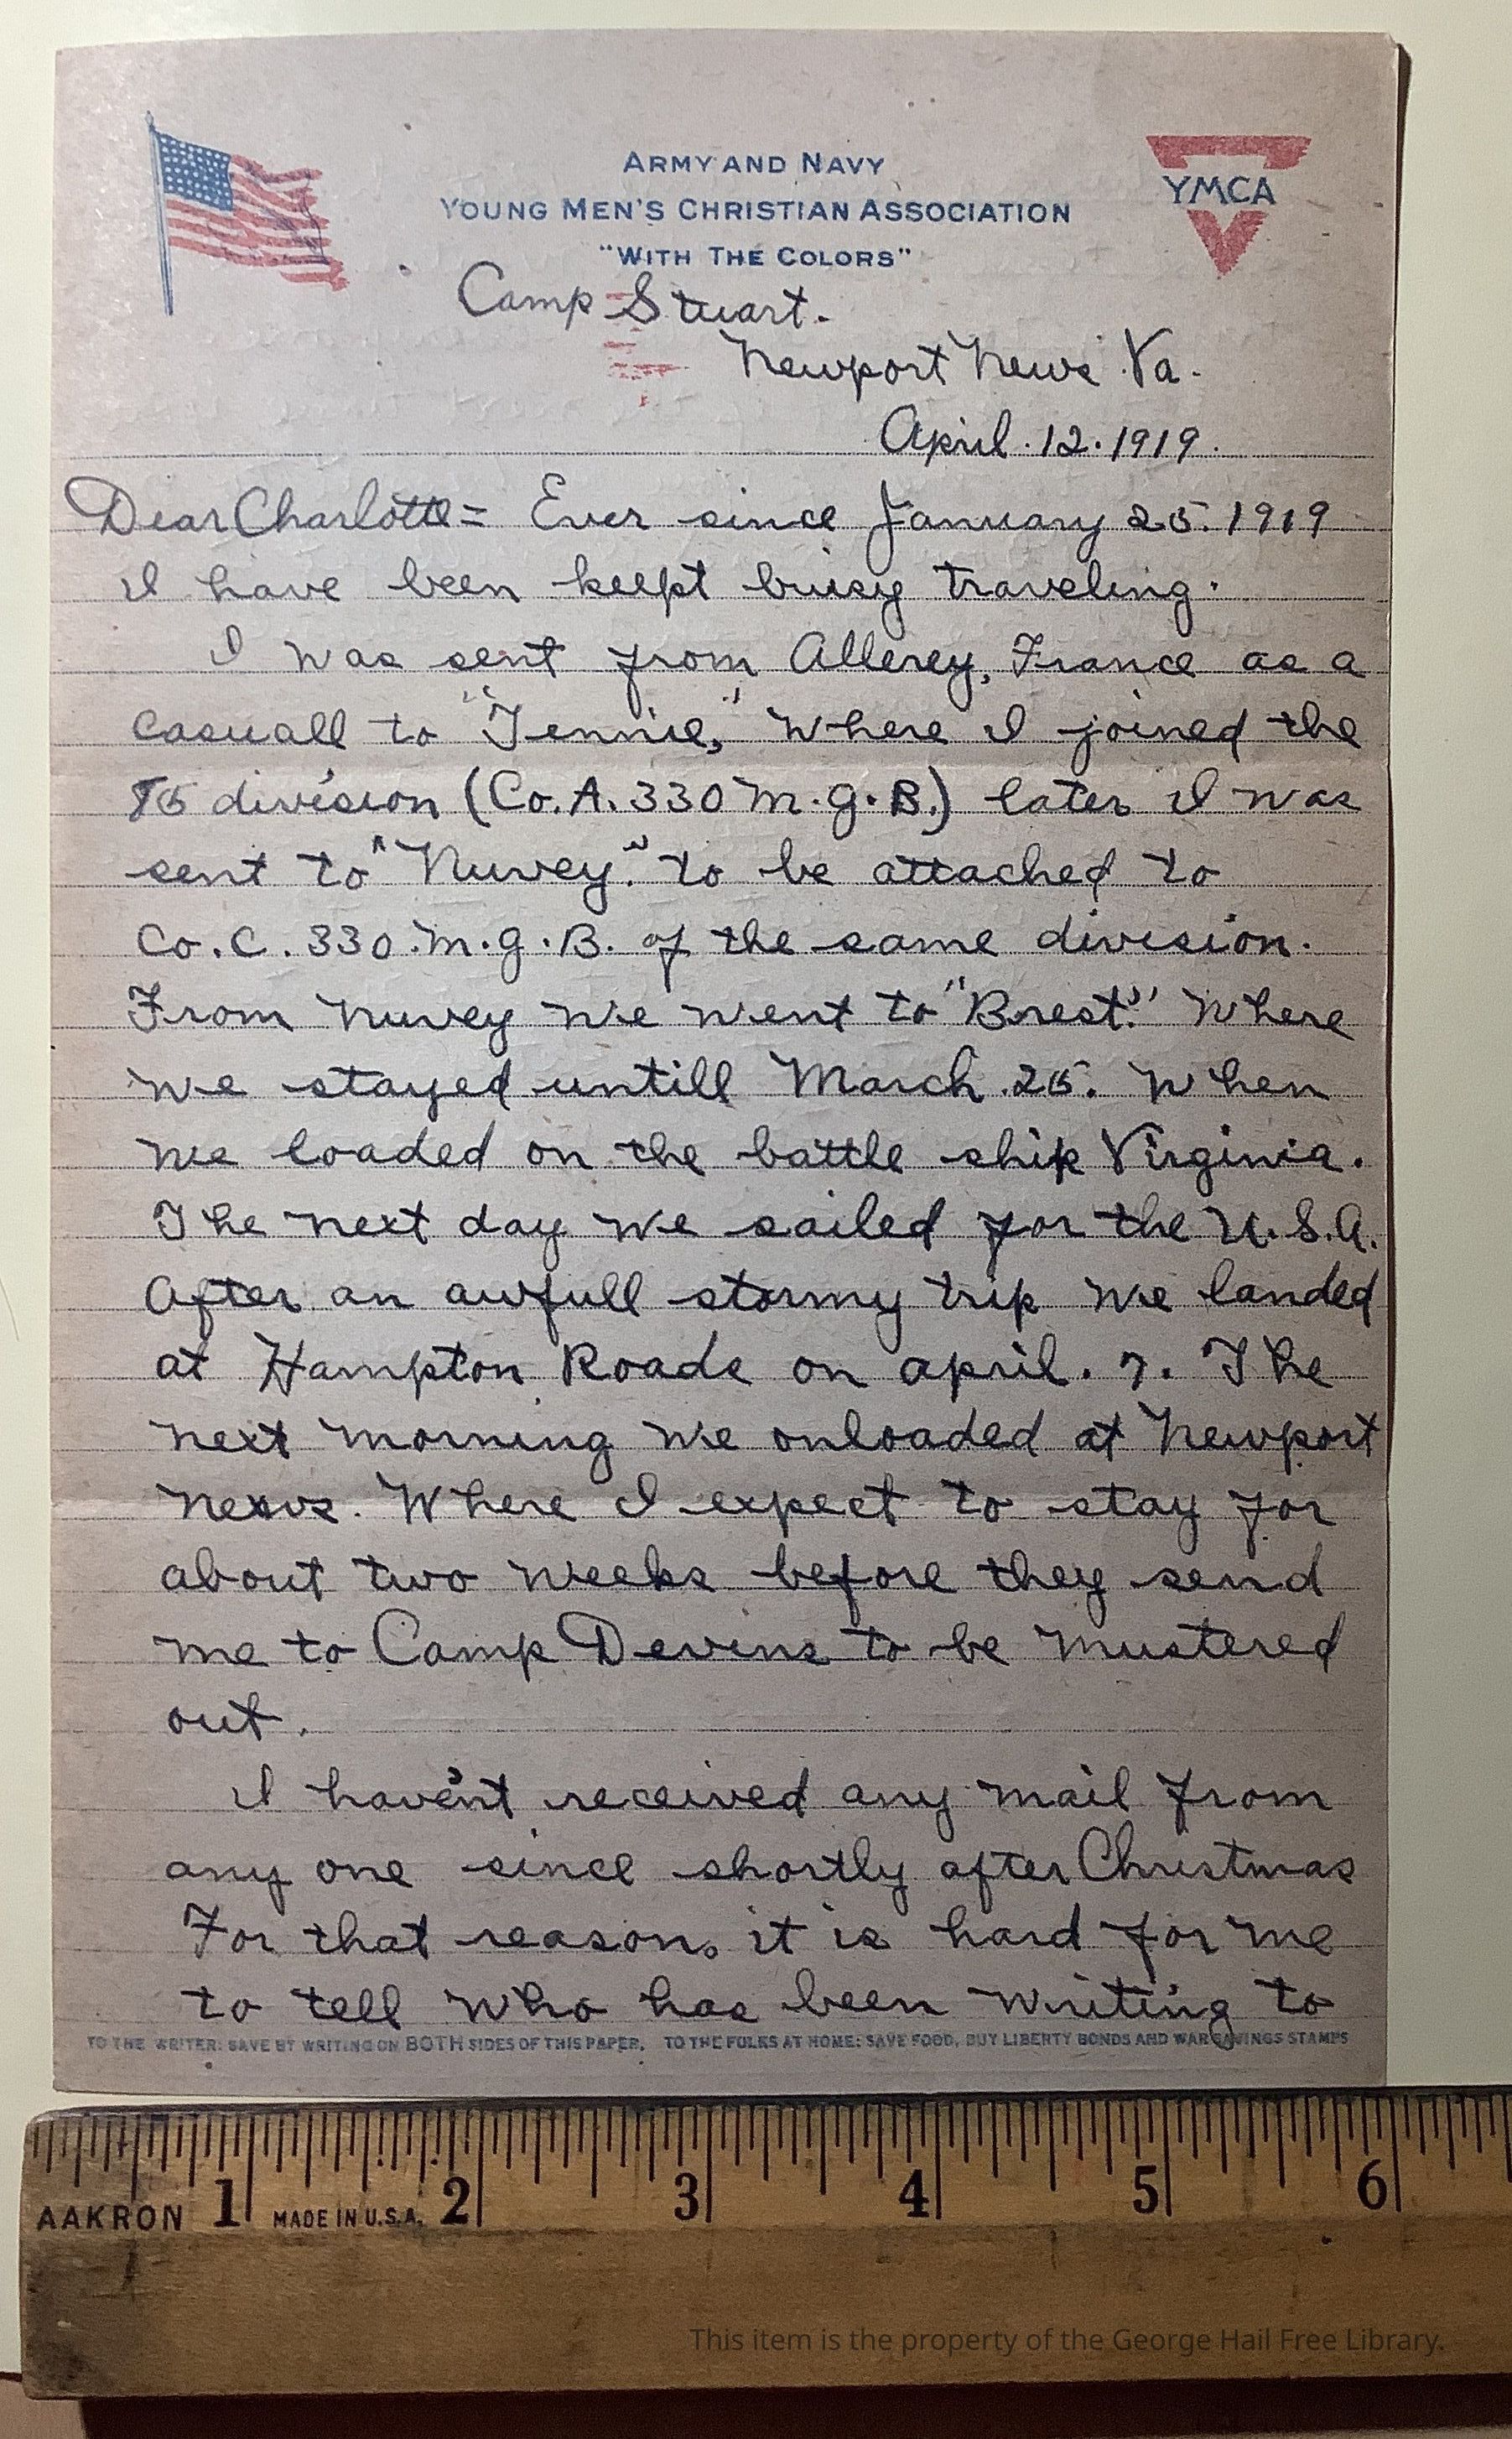 ARMY AND NAVY
YOUNG MEN'S CHRISTIAN ASSOCIATION
"WITH THE COLORS"
YMCA
Camp Stuart.
Newport News Va.
April. 12. 1919.
Dear Charlotte = Ever since January 25. 1919
I have been keept buisy traveling.
I was sent from Allerey, France as a
casuall to "Jennie," Where I joined the
85 division (Co. A. 330 M. G. B.) later I was
sent to "Nuvey." to be attached to
Co. C. 330. M. G. B. of the same division.
From Nuvey we went to "Brest." Where
we stayed untill March. 25. When
we loaded on the battle ship Virginia.
The next day we sailed for the U. S. A.
After an awfull stormy trip we landed
at Hampton Roads on april. 7. The
next morning we onloaded at Newport
News. Where I expect to stay for
about two weeks before they send
me to Camp Devins to be mustered
out.
I haven't received any mail from
any one since shortly after Christmas
For that reason, it is hard for me
to tell who has been writing to
TO THE WRITER: SAVE BY WRITING ON BOTH SIDES OF THIS PAPER. TO THE FOLKS AT HOME: SAVE FOOD, BUY LIBERTY BONDS AND WAR SAVINGS STAMPS
1 2 3 4 5 6
AAKRON MADE IN U.S.A.
This item is the property of the George Hail Free Library.